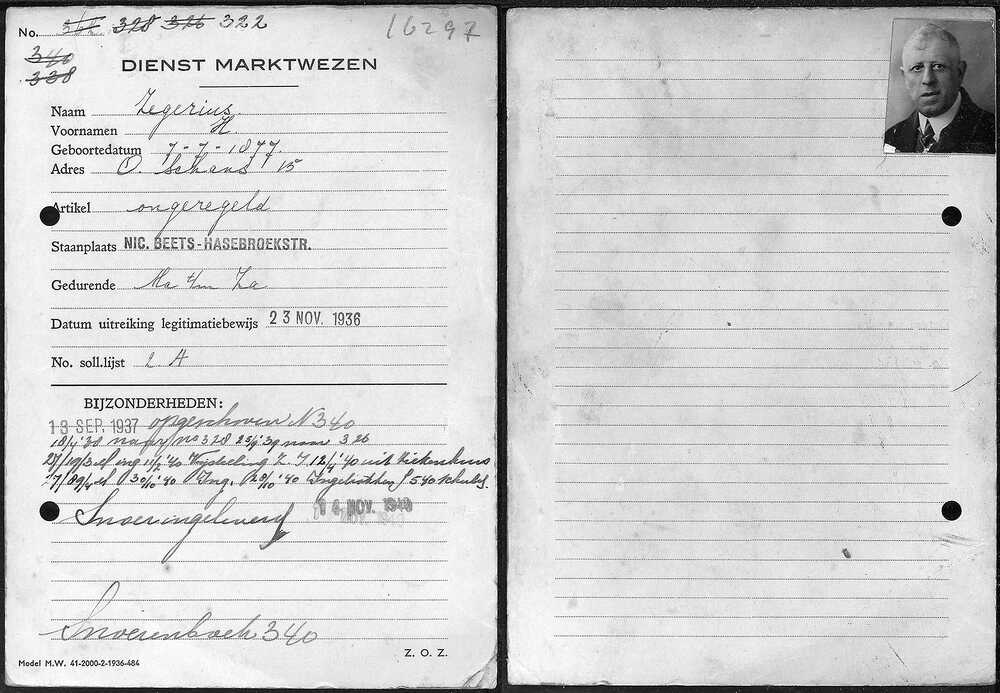 No. 328 326 322
16297
340
338
DIENST MARKTWEZEN
Naam Zegerius.
Voornamen H.
Geboortedatum 7-7-1877.
Adres O. Schans 15
Artikel ongeregeld
Staanplaats NIC. BEETS-HASEBROEKSTR.
Gedurende Ma t/m Za
Datum uitreiking legitimatiebewijs 23 NOV. 1936
No. soll.lijst L. A
BIJZONDERHEDEN:
13 SEP. 1937 opgeschoven N 340
18/1 '38 naar no 328 25/1 '39 naar 326
11/2 '40 12/4 '40 uit Ziekenhuis
30/10 '40 Ing. 28/10 '40 Ingetrokken f 5.40 schuld.
Snoer ingeleverd 14 NOV. 1940
Snoerenboek 340
Z. O. Z.
Model M.W. 41-2000-2-1936-484